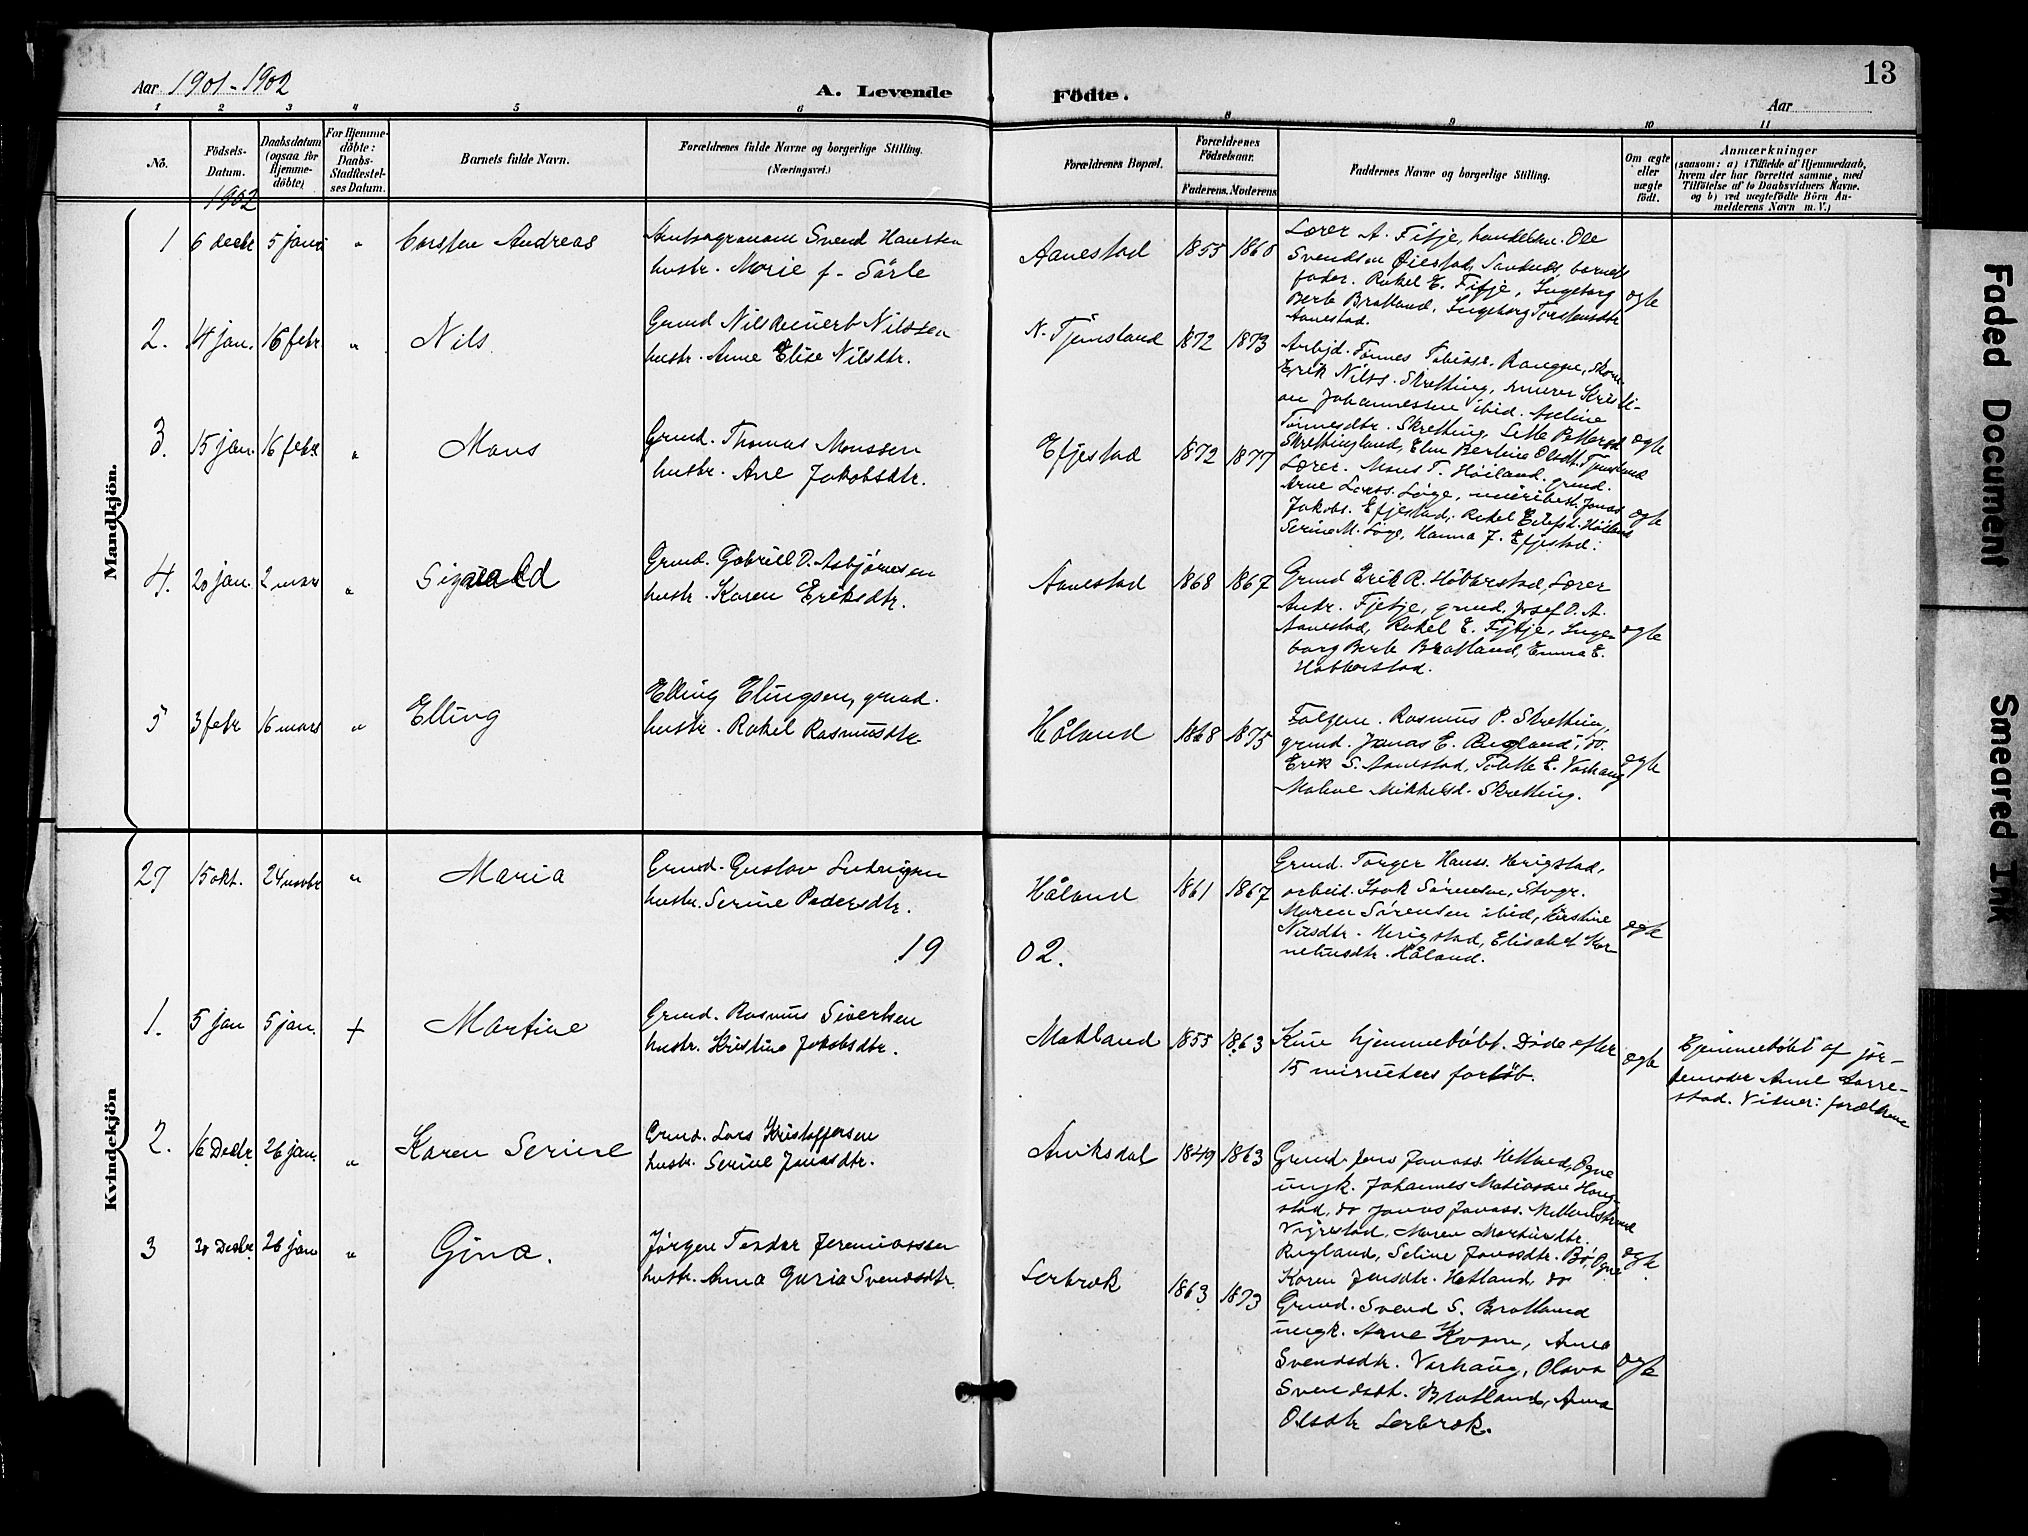 13
Aar 1901-1902
A. Levende Födte.
Aar
1 2 3 4 5 6 8 9 10 11
Nö.
Födsels-Datum.
Daabsdatum (ogsaa for Hjemme-döbte)
For Hjemme-döbte: Daabs-Stadfæstel-ses Datum.
Barnets fulde Navn.
Forældrenes fulde Navne og borgerlige Stilling.
(Næringsvei.)
Forældrenes Bopæl.
Forældrenes Födselsaar.
Faderens. Moderens.
Faddernes Navne og borgerlige Stilling.
Om ægte eller uægte födt.
Anmærkninger
saasom: a) i Tilfælde af Hjemmedaab,
hvem der har forrettet samme, med
Tilföielse af to Daabsvidners Navne.
og b) ved uægtefödte Börn An-
melderens Navn m. V.)
1902
Mandkjön.
1 6 decbr 5 jan " Torsten Andreas
Svend Hansen
hustr. Marie f. Särle
Aanestad 1855 1860
Lærer A. Fitje, handelsm. Ole
Svendsen Øiestad, Sandnes, barnets
fader. Rakel E. Fitje, Ingeborg
Berte Bratland, Ingeborg Torstensdtr
Aanestad.
egte
2. 14 jan. 16 febr " Nils
Grund Nils Nilssen
hustr. Anne Elise Nilsdtr.
N. Tjemsland 1872 1873
Arbjd. Tønnes Tobiass. Rangen, Skom.
Erik Nilss. Skretting, Kristi-
an Johannessen ibid. Aseline
Tønnesdtr. Skretting,
Skrettingland, Elen Bertine Olsdt. Tjemsland
egte
3. 15 jan. 16 febr. " Mons
Grund. Thomas Monssen
hustr. Ane Jakobsdtr.
Efjestad 1872 1877
Lærer. Mons T. Høiland, grund.
Arne Larss. Løge, meieribest. Jonas
Jakobs. Efjestad, Rakel Høiland
Serine M. Løge, Hanna J. Efjestad.
egte
4. 20 jan. 2 mars " Sigvald
Grund. Gabriel O. Asbjørnsen
hustr. Karen Eriksdtr.
Aanestad 1868 1867
Grund Erik R. Høbberstad, Lærer
Andr. Fjetje, grund. Josef O. A.
Aanestad, Rakel E. Fitje, Inge-
borg Berte Bratland, Emma E.
Høbberstad.
egte
5 3 febr 16 mars " Elling
Elling Elingsen, grund.
hustr. Rakel Rasmusdtr
Håland 1868 1875
Rasmus P. Skretting,
grund. Jonas E. Rugland, do.
Erik S. Aanestad, Tolette E. Varhaug
Malene Mikkelsd. Skretting.
egte
Kvindekjön
27 15 okt. 24 novbr " Maria
Grund. Gustav Ludvigsen
hustr. Serine Pedersdtr.
Håland 1861 1867
Grund. Torger Hanss. Herigstad,
arbeid. Isak Sørensen, Stvgr.
Maren Sørensen ibid, Kirstine
Nilsdtr. Herigstad, Elisabet Kor-
neliusdtr. Håland.
egte
19 02.
1. 5 jan 5 jan. + Martine
Grund. Rasmus Sivertsen
hustr. Kristine Jakobsdtr.
Motland 1855 1863
Kun hjemmedøbt. Døde efter
15 minuters forløb.
egte
Hjemmedøbt af jor-
demoder Anne Aarre-
stad. Vidner: forældrene
2. 16 Decbr. 26 jan. " Karen Serine
Grund. Lars Kristoffersen
hustr. Serine Jonasdtr.
Aniksdal 1849 1863
Grund. Jens Jonass. Hetland, Ogne
ungk. Johannes Matiassen Haug-
stad, do Jonas Jonass. Mellemstrand
Vigrestad, Maren Martinsdtr.
Rugland, Seline Jonasdtr. Bø, Ogne
Karen Jensdtr. Hetland, do
egte
3 30 Decbr. 26 jan " Gina.
Jørgen Teodor Jeremiassen
hustr. Anna Guria Svendsdtr
Lerbrek 1863 1873
Grund. Svend S. Bratland
ungk. Arne Kvam, Anna
Svendsdtr. Varhaug, Olava
Svendsdt. Bratland, Anna
Olsdtr Lerbrek.
egte
Faded Document
Smeared Ink